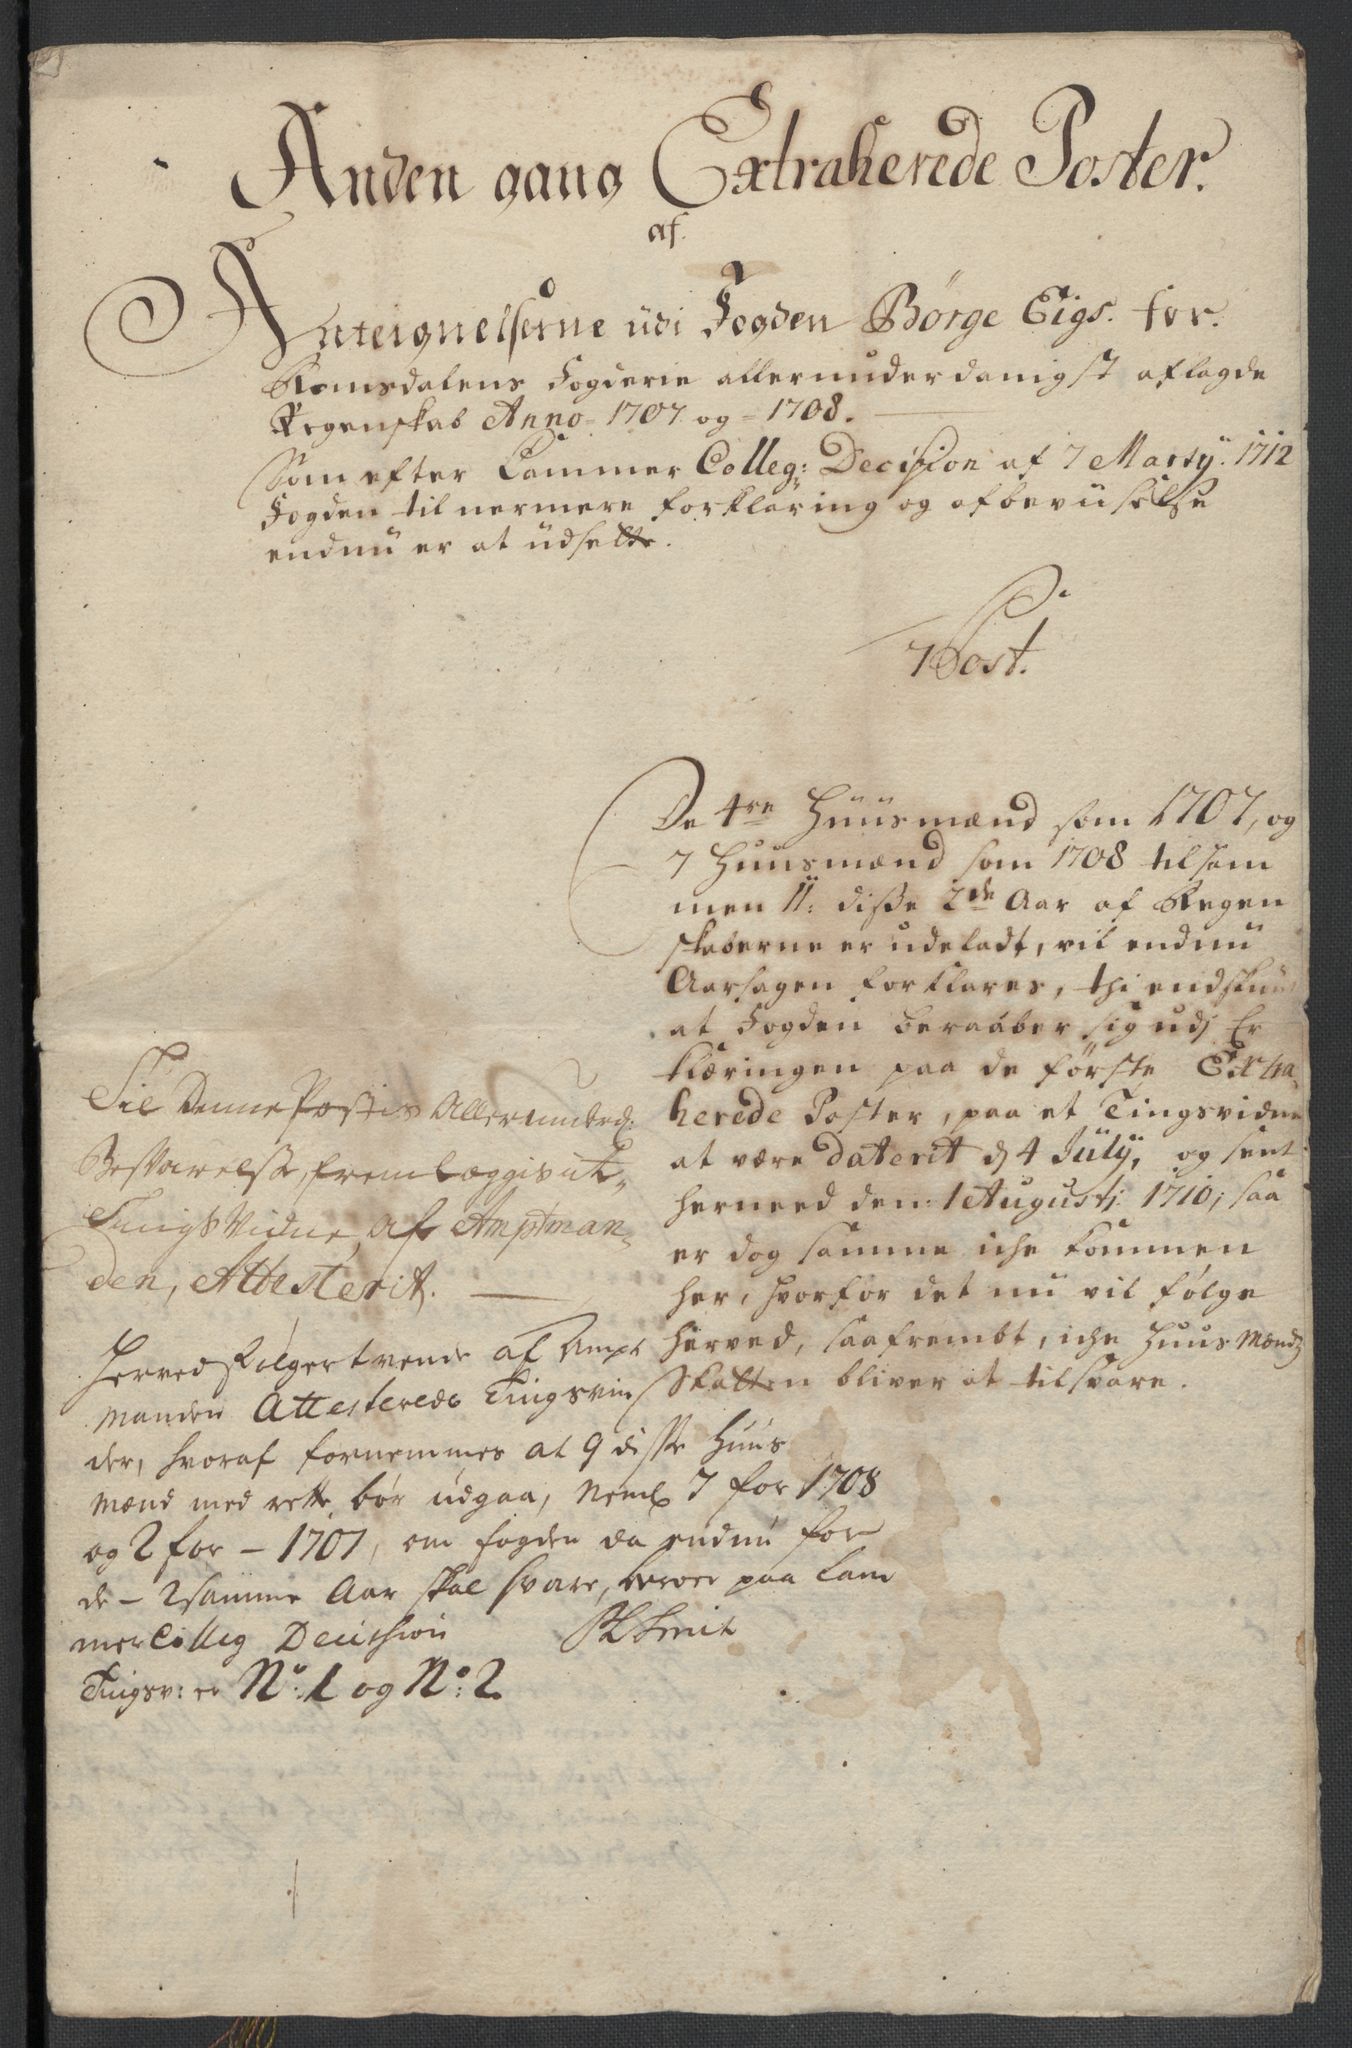 Anden gang Extraherede Poster.
af
Antegnelserne udi Fogden Børge Eigs. for.
Romsdalens Fogderie allerunderdanigst aflagde
Regenskab Anno 1707 og 1708.
Som efter Cammer Colleg: Decision af 7 Martÿ. 1712
Fogden til nermere forklaring og afbeviselse
endnu er at udsette.
7 Post.
De 4re Huusmænd som 1707, og
7 Huusmænd som 1708 tilsam
men 11: disse 2de Aar af Regen
skaberne er udeladt, vil endnu
Aarsagen forklares, thi endskiønt
at Fogden beraaber sig udj Er
klæringen paa de første Extra-
herede Poster, paa et Tingsvidne
at være daterit d 4 Julÿ, og sent
herneed den 1 Augustj 1710, saa
er dog samme iche kommen
her, hvorfor det nu vil følge
herved, saafrembt, iche Huus Mændz
Skatten bliver at tilsvare.
Til Denne Postis Allerunderd:
Besvarelse, fremlæggis it
Tings Vidne af Amptman
den, Attesterit.
Herved følger tvende af Ampt
manden Attesterede Tingsvin
der, hvoraf fornemmes at 9 disse Huus
mænd med rette bør udgaa, neml 7 for 1708
og 2 for - 1707, om fogden da endnu for
de - 2 samme Aar skal svare, beroer paa Cam
mer Colleg Decission
Smit
Tingsv: er No: 1 og No: 2.